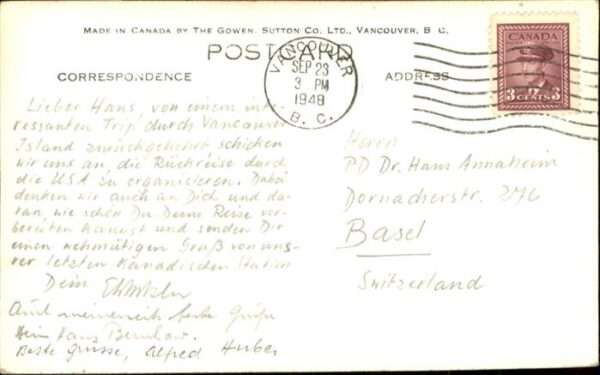 MADE IN CANADA BY THE GOWEN, SUTTON CO. LTD., VANCOUVER, B. C.
POSTCARD
CORRESPONDENCE
ADDRESS
VANCOUVER
SEP 23
3 PM
1948
B. C.
CANADA
3 CENTS 3
Lieber Hans, von einem inte-
ressanten Trip durch Vancouver
Island zurückgekehrt schicken
wir uns an die Rückreise durch
die USA zu organisieren. Dabei
denken wir auch an Dich und da-
ran, wie schön Du Deine Reise vor-
bereiten kannst und senden Dir
einen wehmütigen Gruß von uns-
rer letzten Kanadischen Station
Dein
Auch meinerseits beste Grüße
Dein Hans
Beste Grüsse, Alfred Huber
Herrn
PD Dr. Hans Annaheim
Dornacherstr. 276
Basel
Switzerland